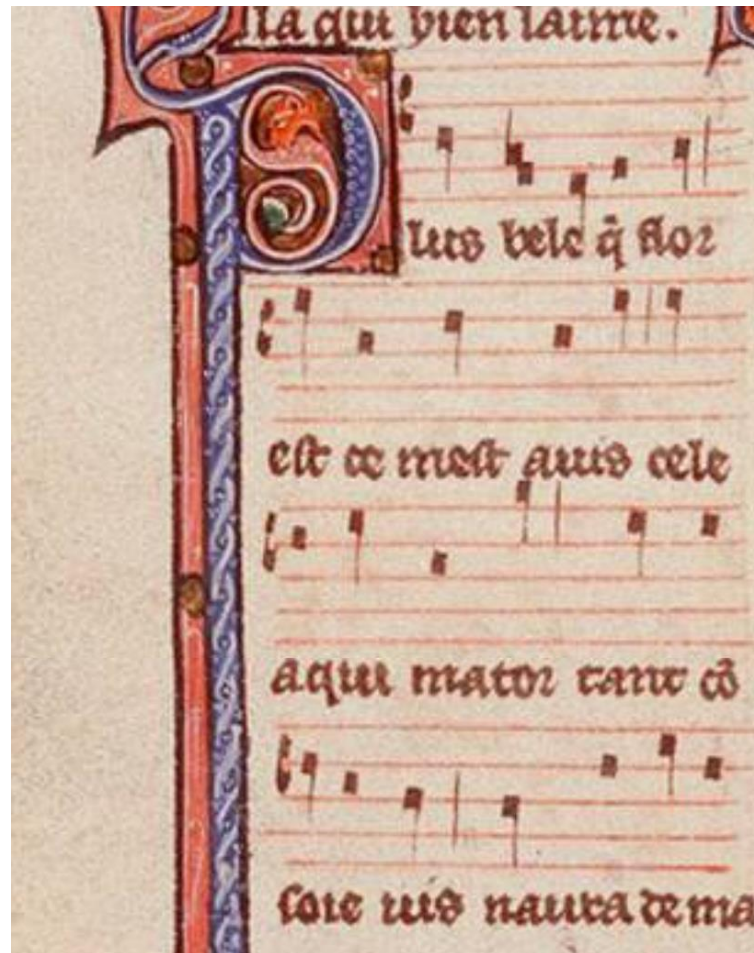 lla qui bien laime.
Plus bele q̃ flor
est ce mest auis cele
a qui mator tant cō
soie uis naura de ma